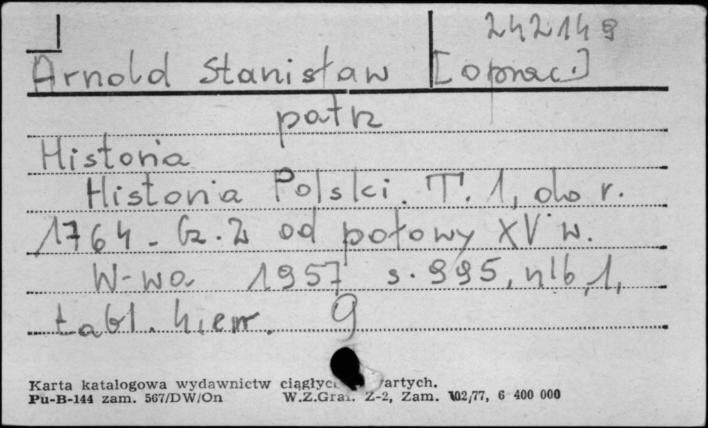 242149
Arnold Stanisław [oprac.]
patrz
Historia
Historia Polski. T. 1, do r.
1764. Cz. 2 od połowy XV w.
W-wa 1957 s. 995, nlb, 1,
tabl.  9
Karta katalogowa wydawnictw artych.
Pu-B-144 zam. 567/DW/On W.Z.Graf. Z-2, Zam. 102/77, 6 400 000